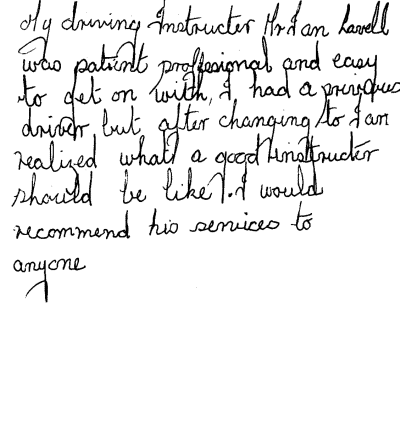 My driving Instructor Mr Ian Lavell
was patient proffesional and easy
to get on with, I had a previous
driver, but after changing to Ian
realized what a good instructor
should be like!. I would
recommend his services to
anyone